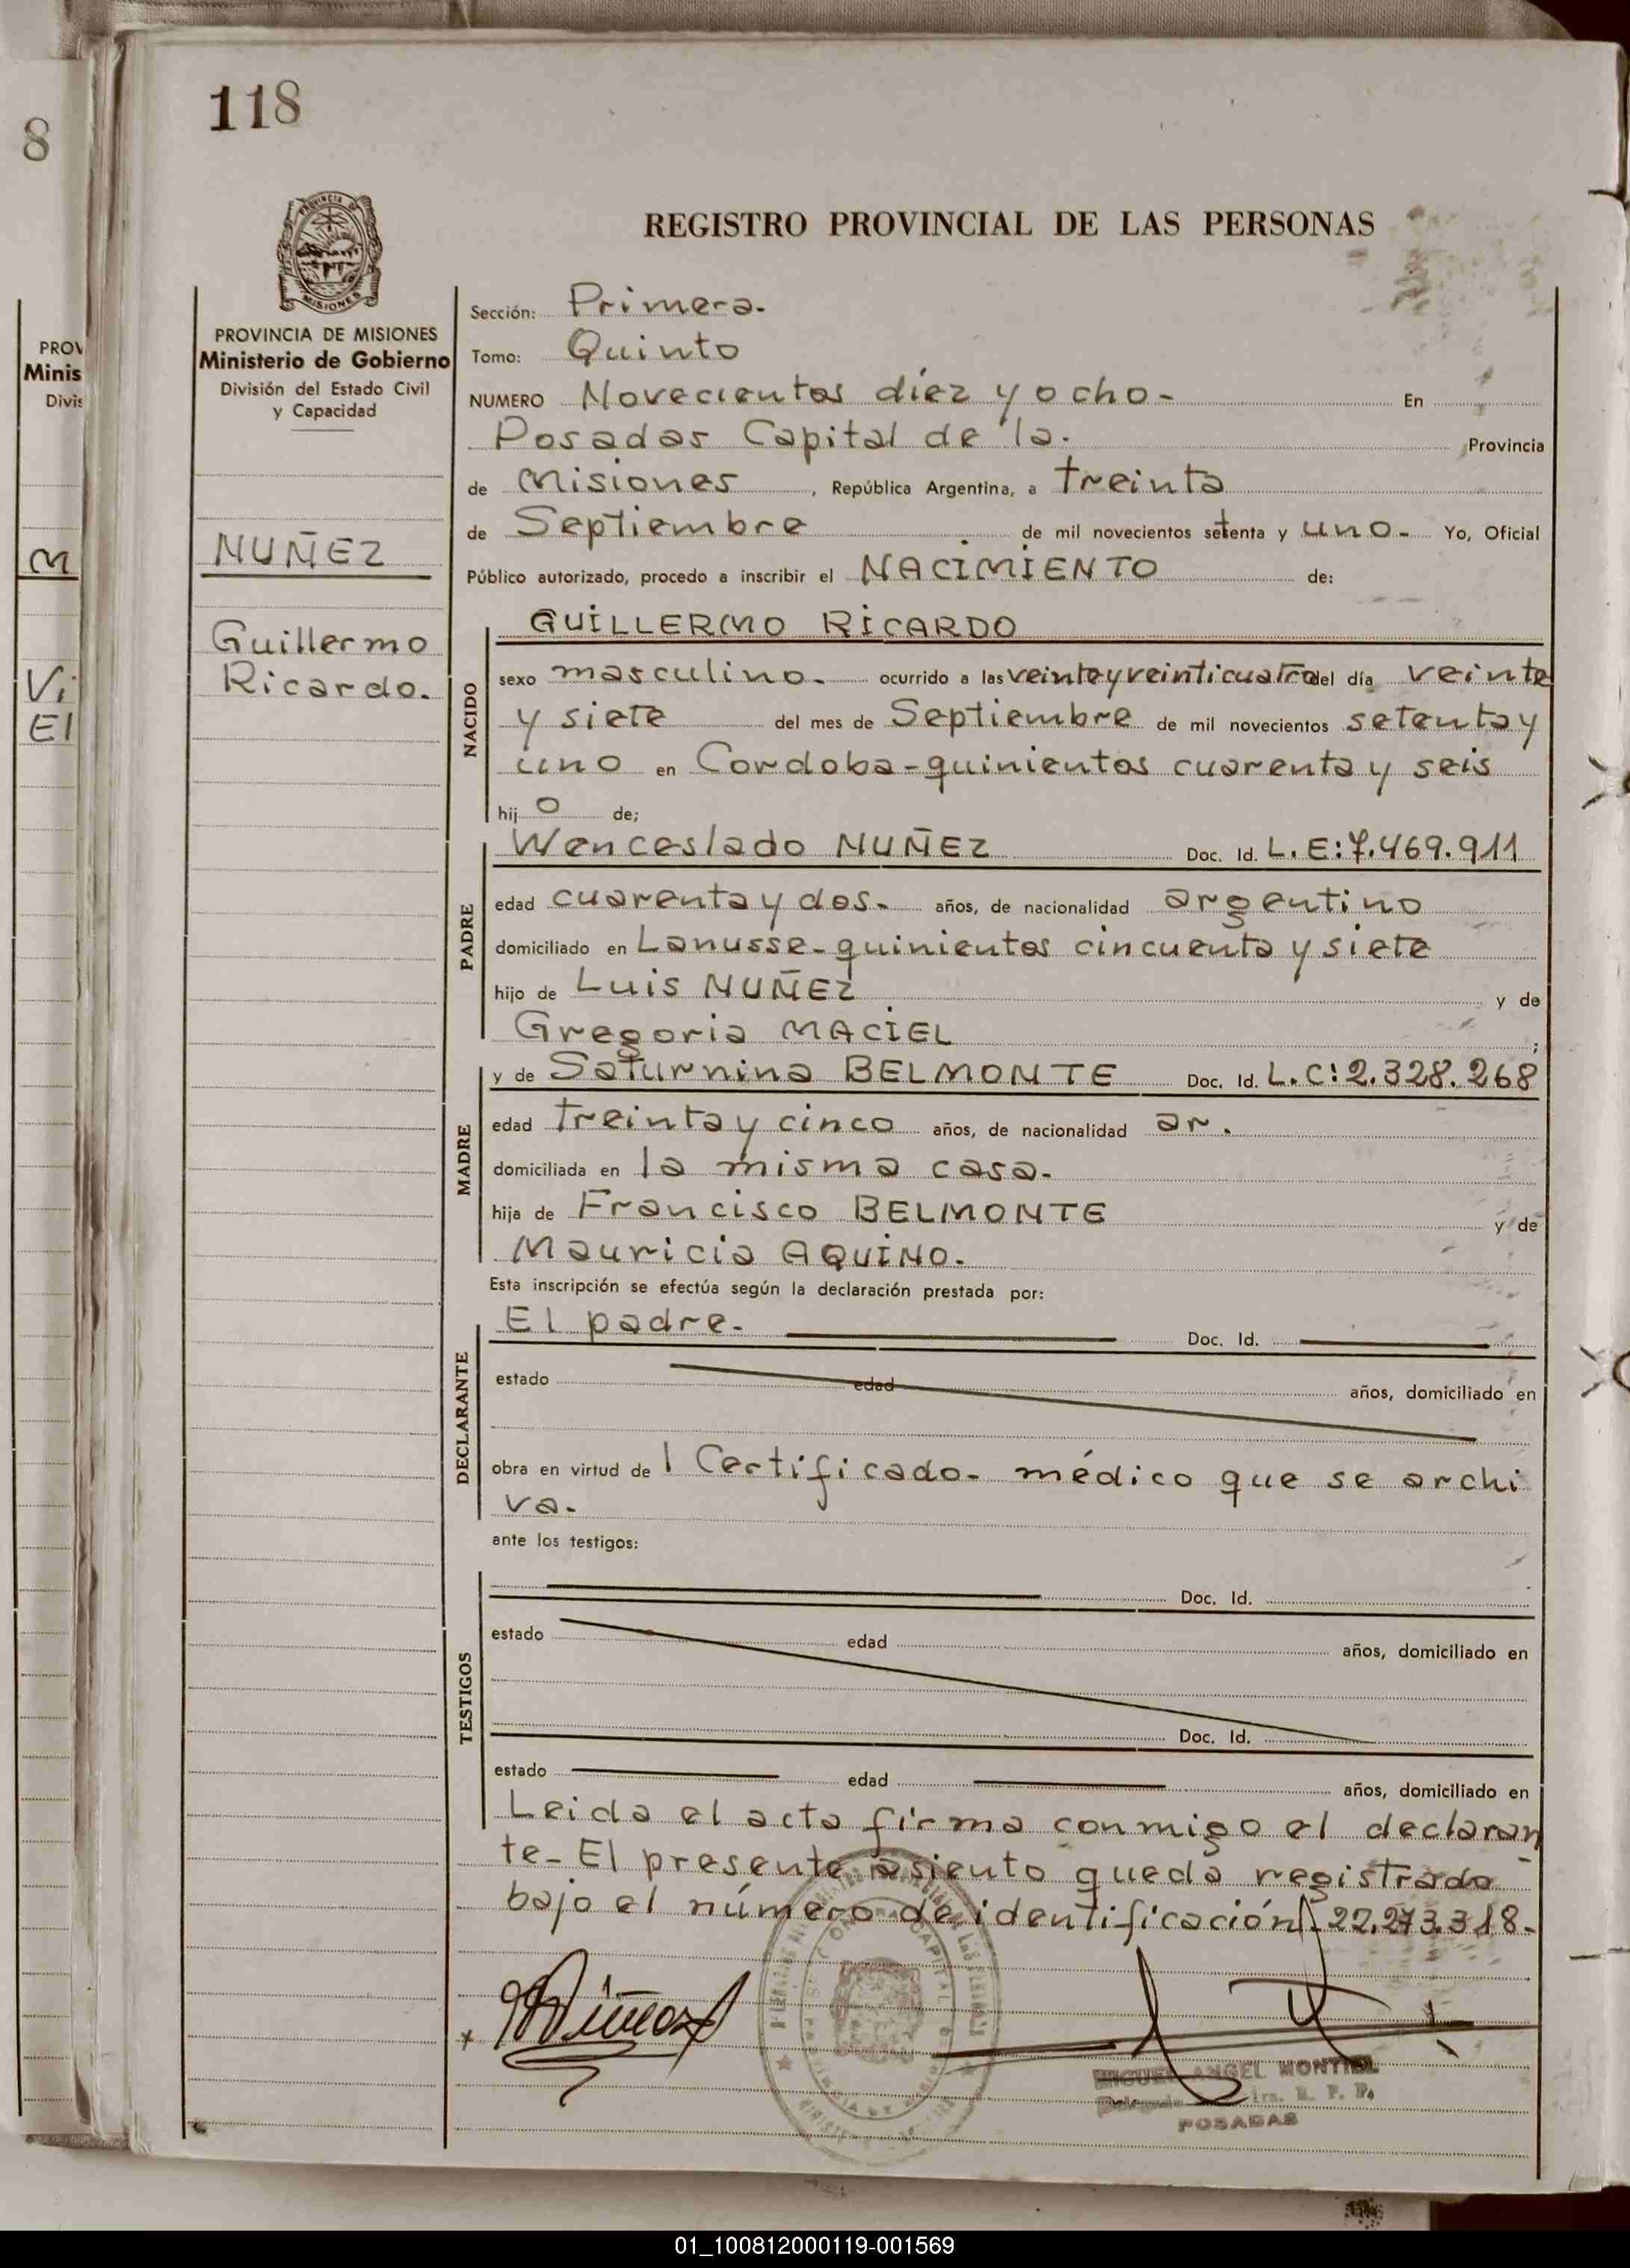 118
8
PROVINCIA DE MISIONES
Ministerio de Gobierno
División del Estado Civil
y Capacidad
NUÑEZ
Guillermo
Ricardo.
PROV
Minis
Divis
M
Vi
El
REGISTRO PROVINCIAL DE LAS PERSONAS
Sección: Primera.
Tomo: Quinto
NUMERO Novecientos diez y ocho - En
Posadas Capital de la. Provincia
de Misiones, República Argentina, a treinta
de Septiembre de mil novecientos setenta y uno - Yo, Oficial
Público autorizado, procedo a inscribir el NACIMIENTO de:
GUILLERMO RICARDO
NACIDO
sexo masculino. ocurrido a las veinte y veinticuatro del día veinte
y siete del mes de Septiembre de mil novecientos setenta y
uno en Cordoba - quinientos cuarenta y seis
hijo de;
PADRE
Wenceslado NUÑEZ Doc. Id. L.E: 7.469.911
edad cuarenta y dos. años, de nacionalidad argentino
domiciliado en Lanusse - quinientos cincuenta y siete
hijo de Luis NUÑEZ y de
Gregoria MACIEL ;
MADRE
y de Saturnina BELMONTE Doc. Id. L.C: 2.328.268
edad treinta y cinco años, de nacionalidad ar.
domiciliada en la misma casa.
hija de Francisco BELMONTE y de
Mauricia AQUINO.
Esta inscripción se efectúa según la declaración prestada por:
DECLARANTE
El padre. Doc. Id.
estado edad años, domiciliado en
obra en virtud de l Certificado - médico que se archi
va.
ante los testigos:
TESTIGOS
Doc. Id.
estado edad años, domiciliado en
Doc. Id.
estado edad años, domiciliado en
Leida el acta firma conmigo el declaran
te - El presente asiento queda registrado
bajo el número de identificación
MIGUEL ANGEL MONTIEL
POSADAS
01_100812000119-001569